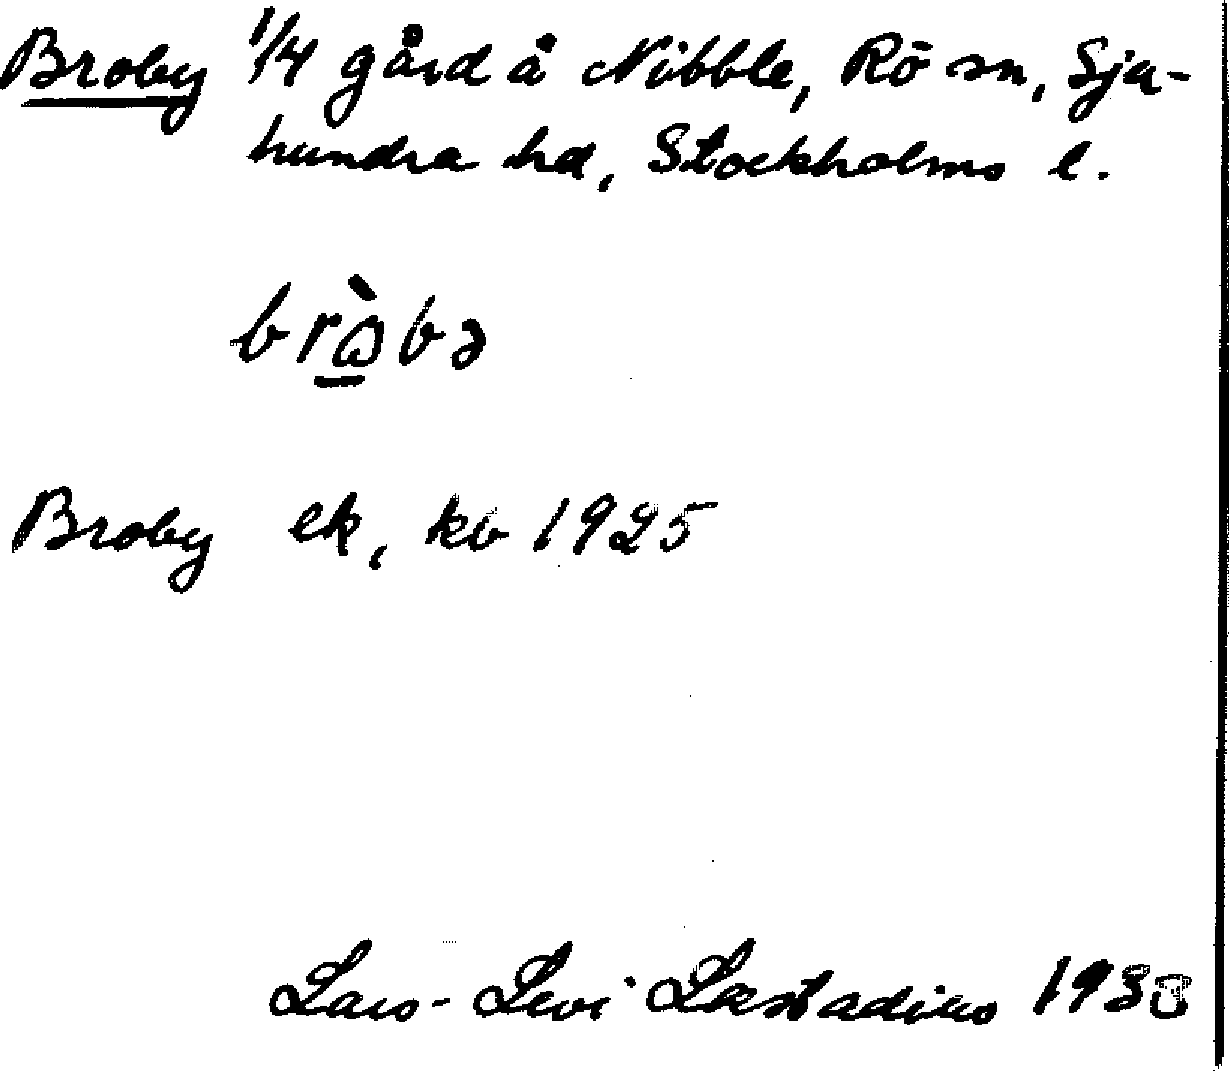 Broby 1/4 gård å Nibble, Rö sn, Sju-
hundra hd, Stockholms l.
Broby ek, kb 1925
Lars-Levi Læstadius